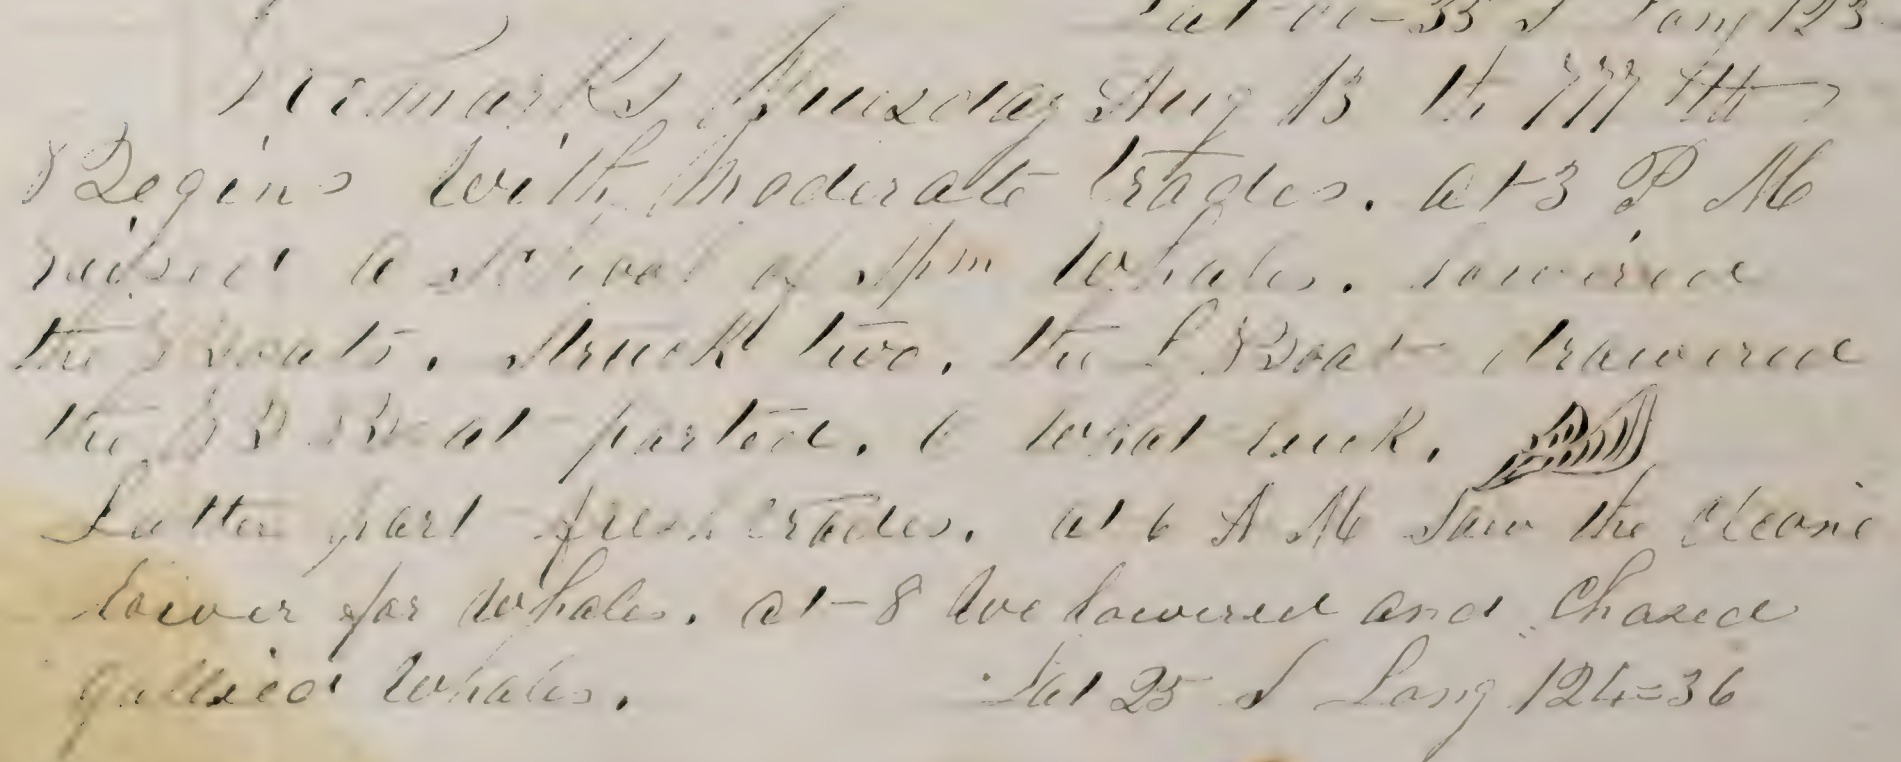 Lat 21-35 S Long 123
Remarks Thursday Aug 13th 1874
Begins with moderate trades. at 3 P M
raised a school of Spm Whales. lowered
the 3 boats. Struck two. the L Boat drawered
the B Boat parted. O what luck.
Latter part fresh trades. at 6 A M Saw the
lower for whales. at 8 We lowered and Chased
gallied Whales. Lat 25 S Long 124=36